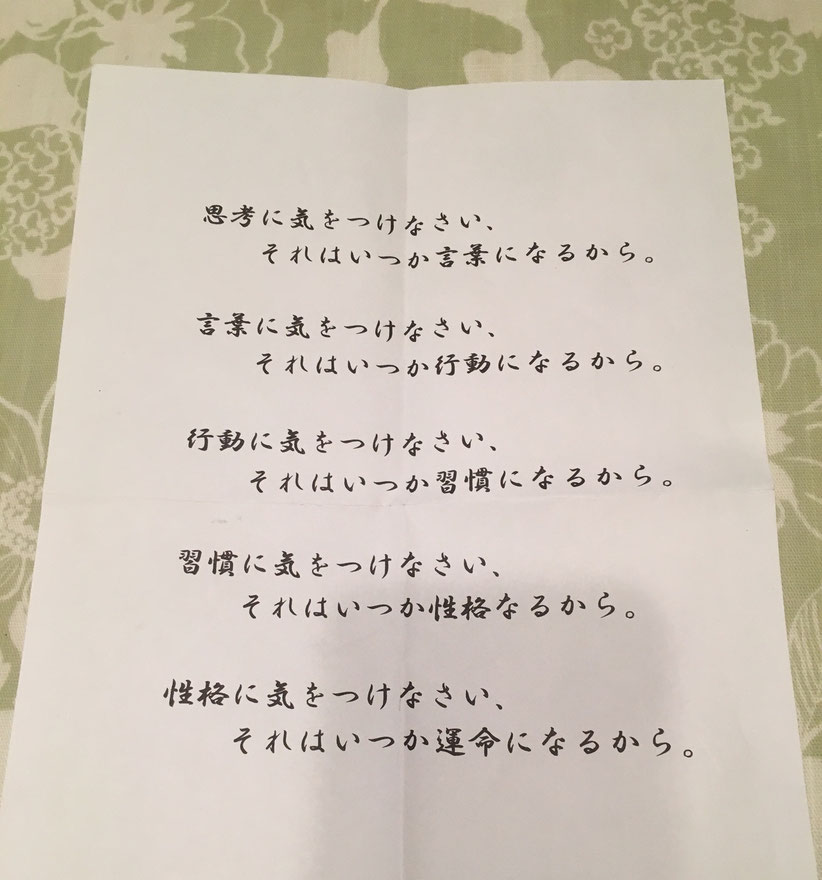 思考に気をつけなさい、
それはいつか言葉になるから。
言葉に気をつけなさい、
それはいつか行動になるから。
行動に気をつけなさい、
それはいつか習慣になるから。
習慣に気をつけなさい、
それはいつか性格なるから。
性格に気をつけなさい、
それはいつか運命になるから。